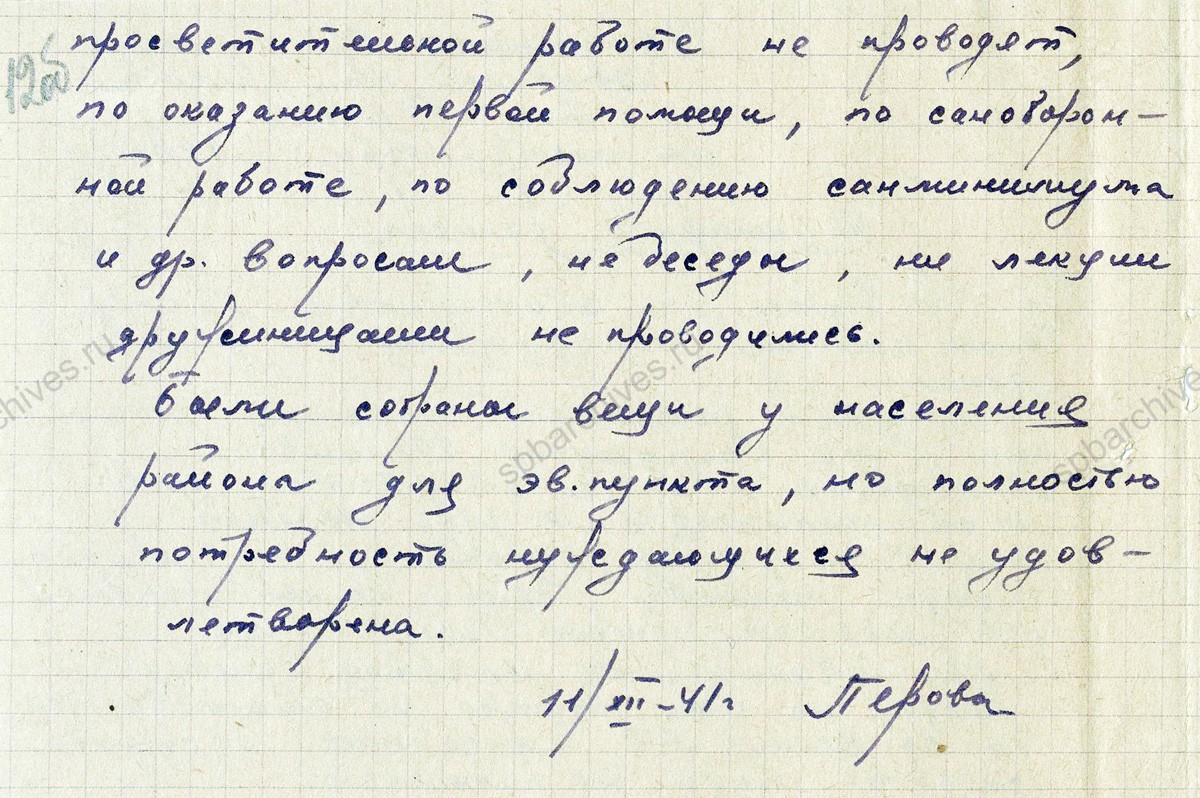 просветительной работе не проводят,
12об
по оказанию первой помощи, по саноборон-
ной работе, по соблюдению санминимума
и др. вопросам, не беседы, ни лекции
дружинницами не проводились.
Были собраны вещи у населения
района для эв. пункта, но полностью
потребность нуждающихся не удов-
летворена.
11/XII-41г Перова
spbarchives.ru
spbarchives.ru
spbarchives.ru